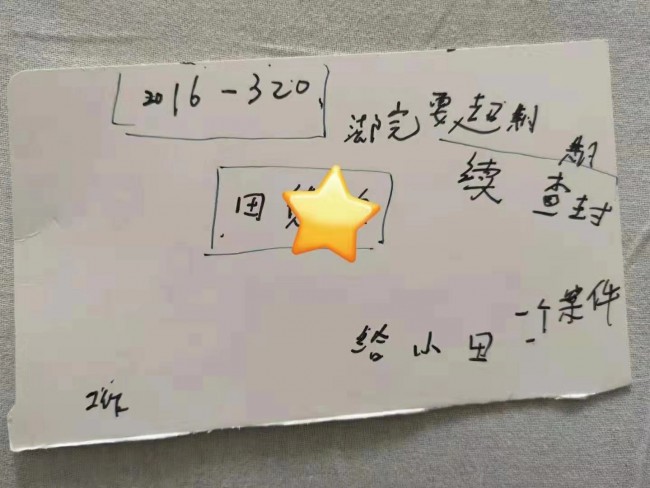 2016-320
法院要起诉
续 查封
田
给小田一个案件
工作